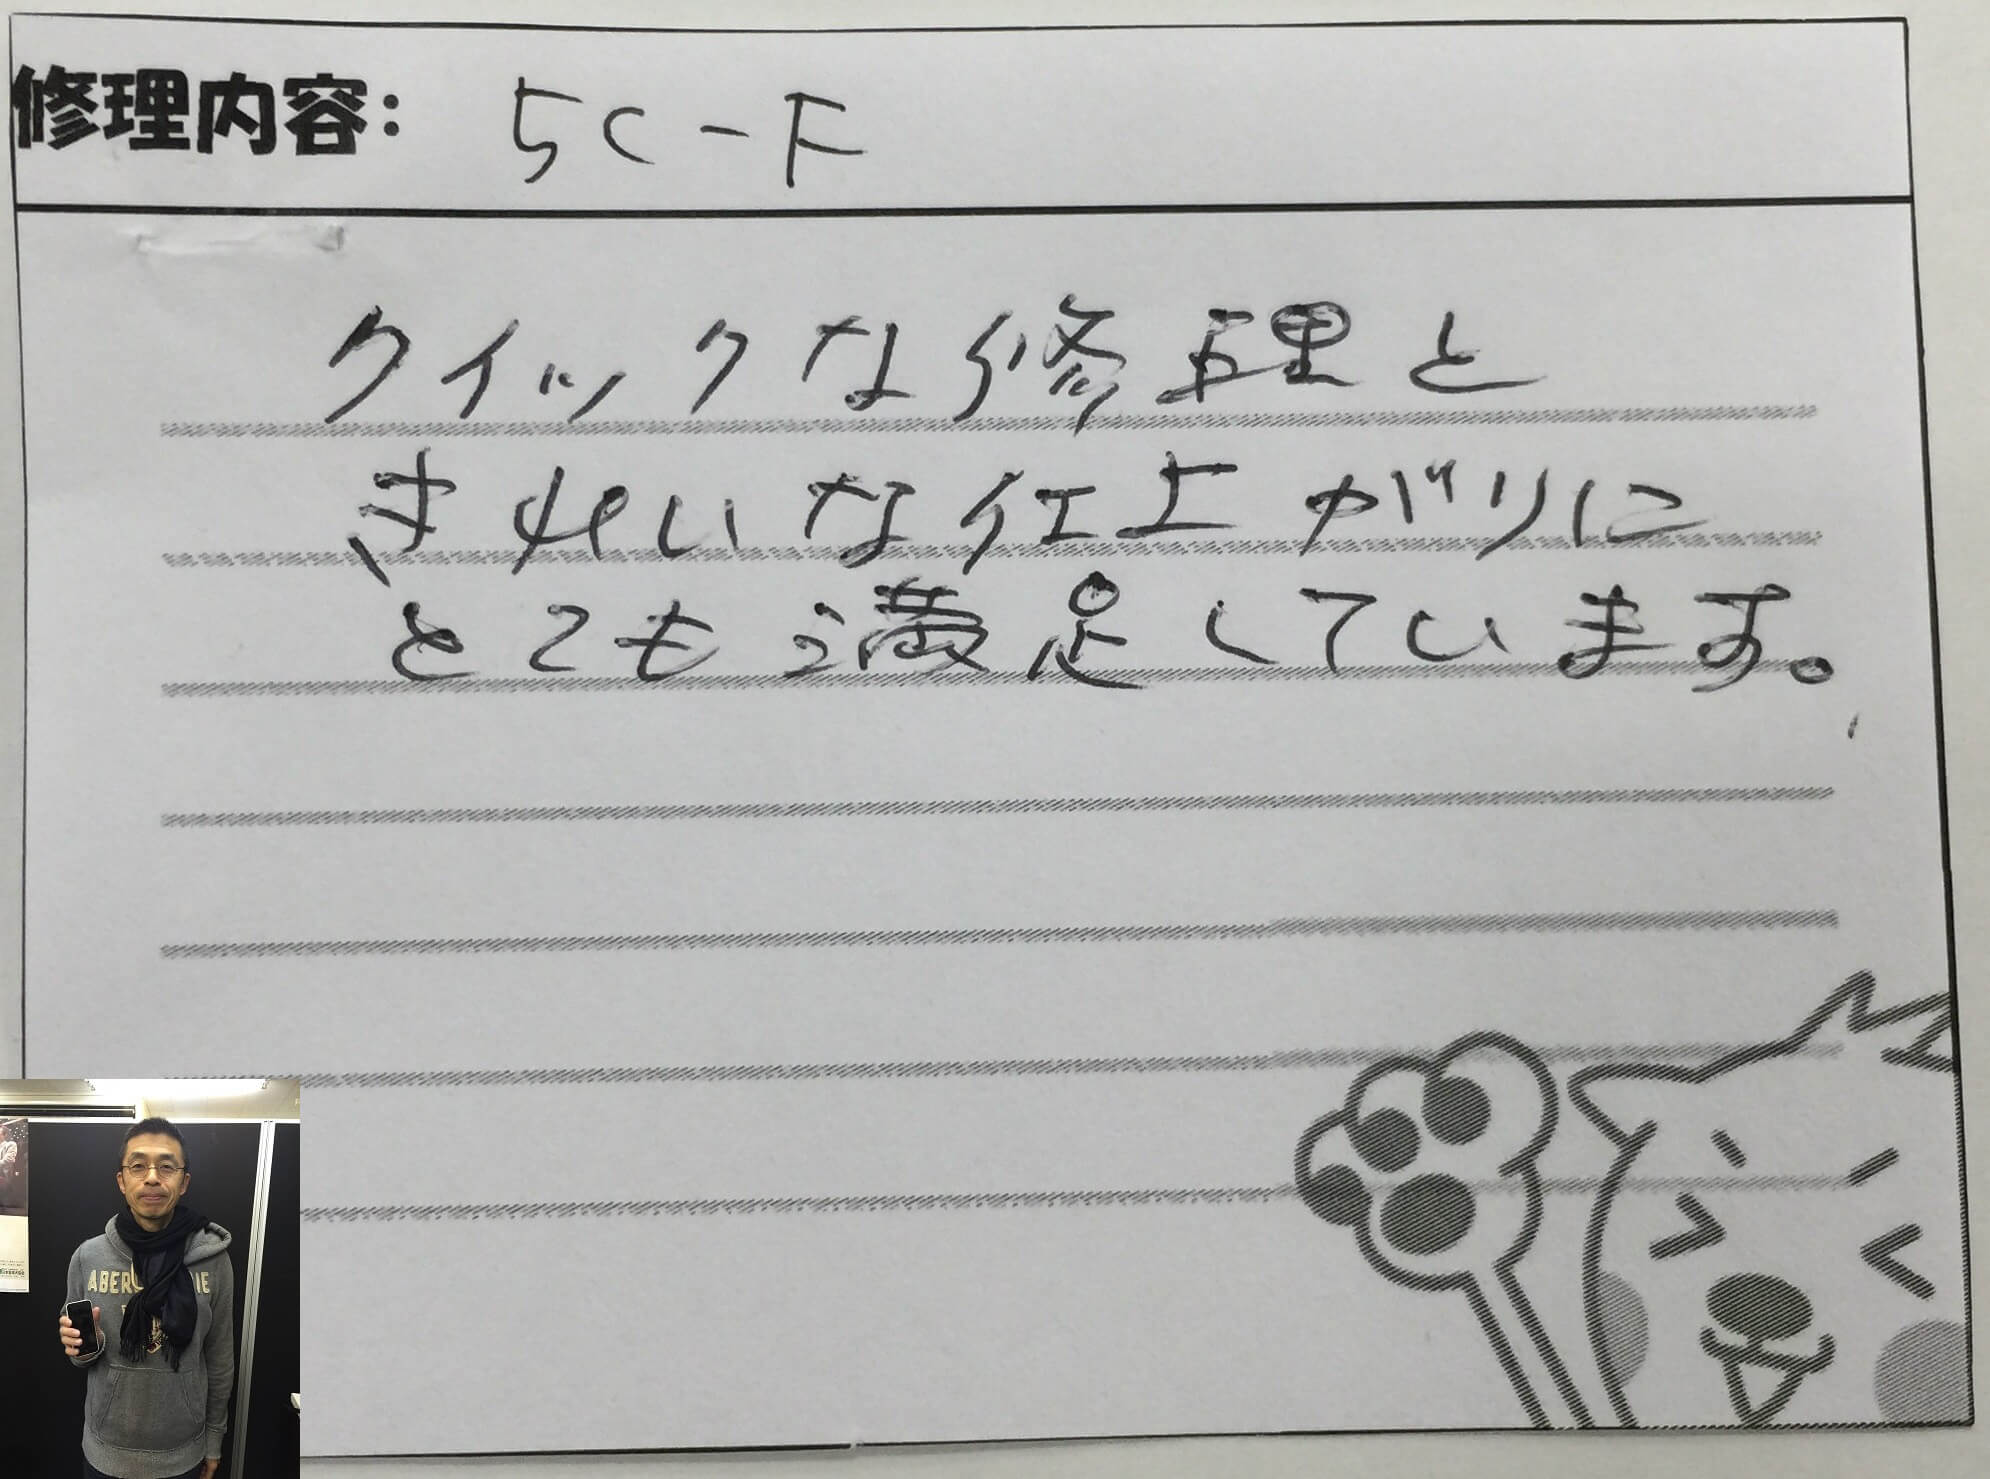 修理内容: 5C-F
クイックな修理と
きれいな仕上がりに
とても満足しています。